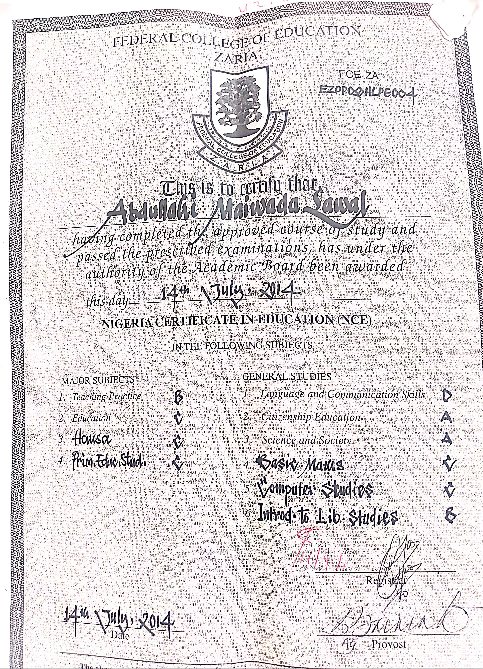 FEDERAL COLLEGE OF EDUCATION
ZARIA
FCE ZA
ZARIA
This is to certify that
Abdullahi Maiwada Lawal
having completed the approved course of study and
passed the prescribed examinations, has under the
authority of the Academic Board been awarded
this day 14th July, 2014
NIGERIA CERTIFICATE IN EDUCATION (NCE)
IN THE FOLLOWING SUBJECTS
MAJOR SUBJECTS
1. Teaching Practice B
2. Education C
3 Hausa C
4 Prim. Edu. Stud. C
GENERAL STUDIES
1. Language and Communication Skills D
2. Citizenship Education A
3. Science and Society A
Basic Maths C
Computer Studies C
Introd. To Lib. Studies B
Registrar
14th July, 2014
Date
Provost